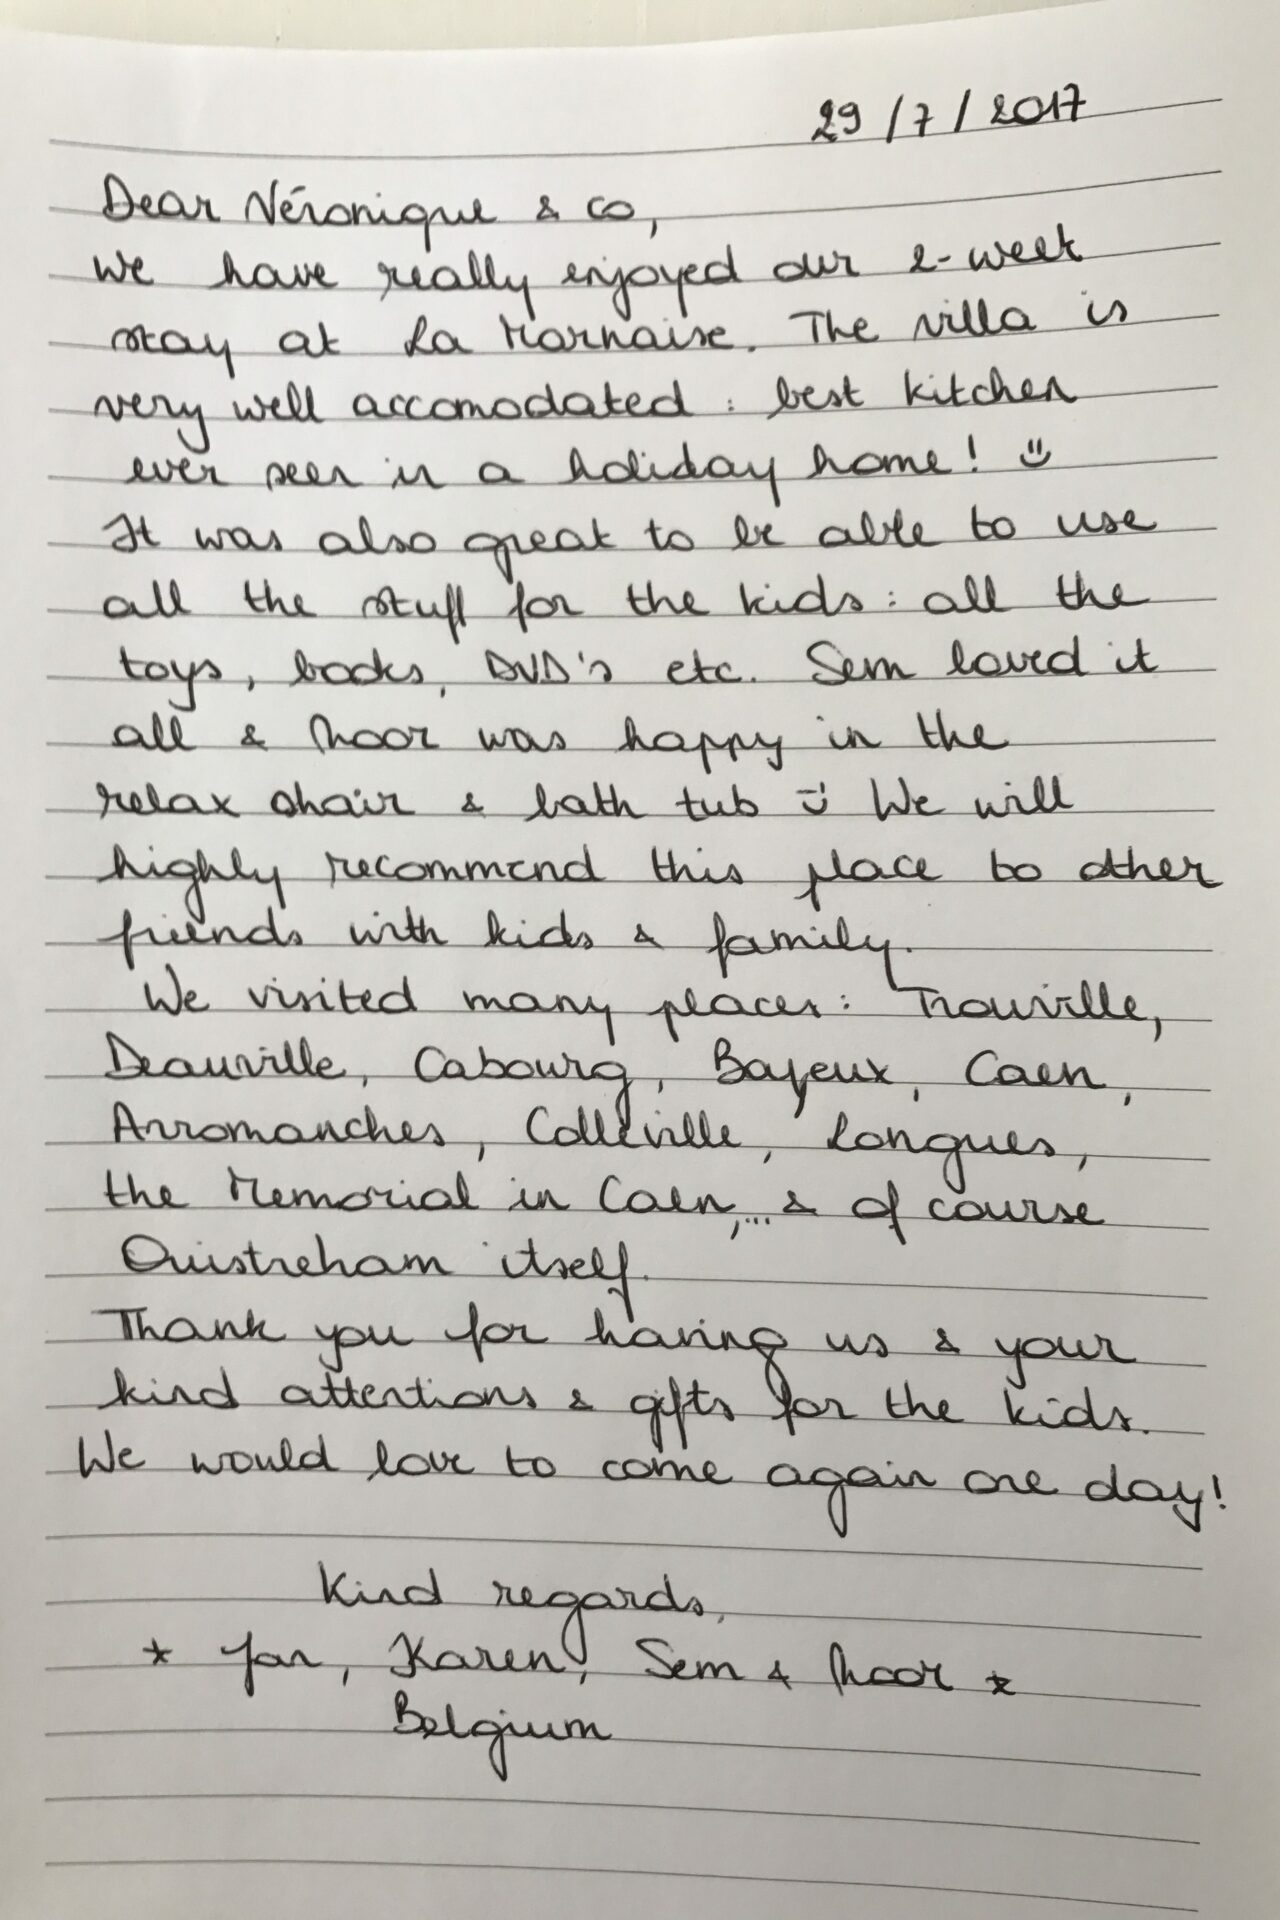 29/7/2017
Dear Véronique & co,
We have really enjoyed our 2-week
stay at La Mornaise. The villa is
very well accomodated : best kitchen
ever seen in a holiday home! ☺
It was also great to be able to use
all the stuff for the kids : all the
toys, books, DVD's etc. Sem loved it
all & Noor was happy in the
relax chair & bath tub ☺ We will
highly recommend this place to other
friends with kids & family.
We visited many places : Trouville,
Deauville, Cabourg, Bayeux, Caen,
Arromanches, Colleville, Longues,
the Memorial in Caen,... & of course
Ouistreham itself.
Thank you for having us & your
kind attentions & gifts for the kids.
We would love to come again one day!
Kind regards,
* Jan, Karen, Sem & Noor *
Belgium